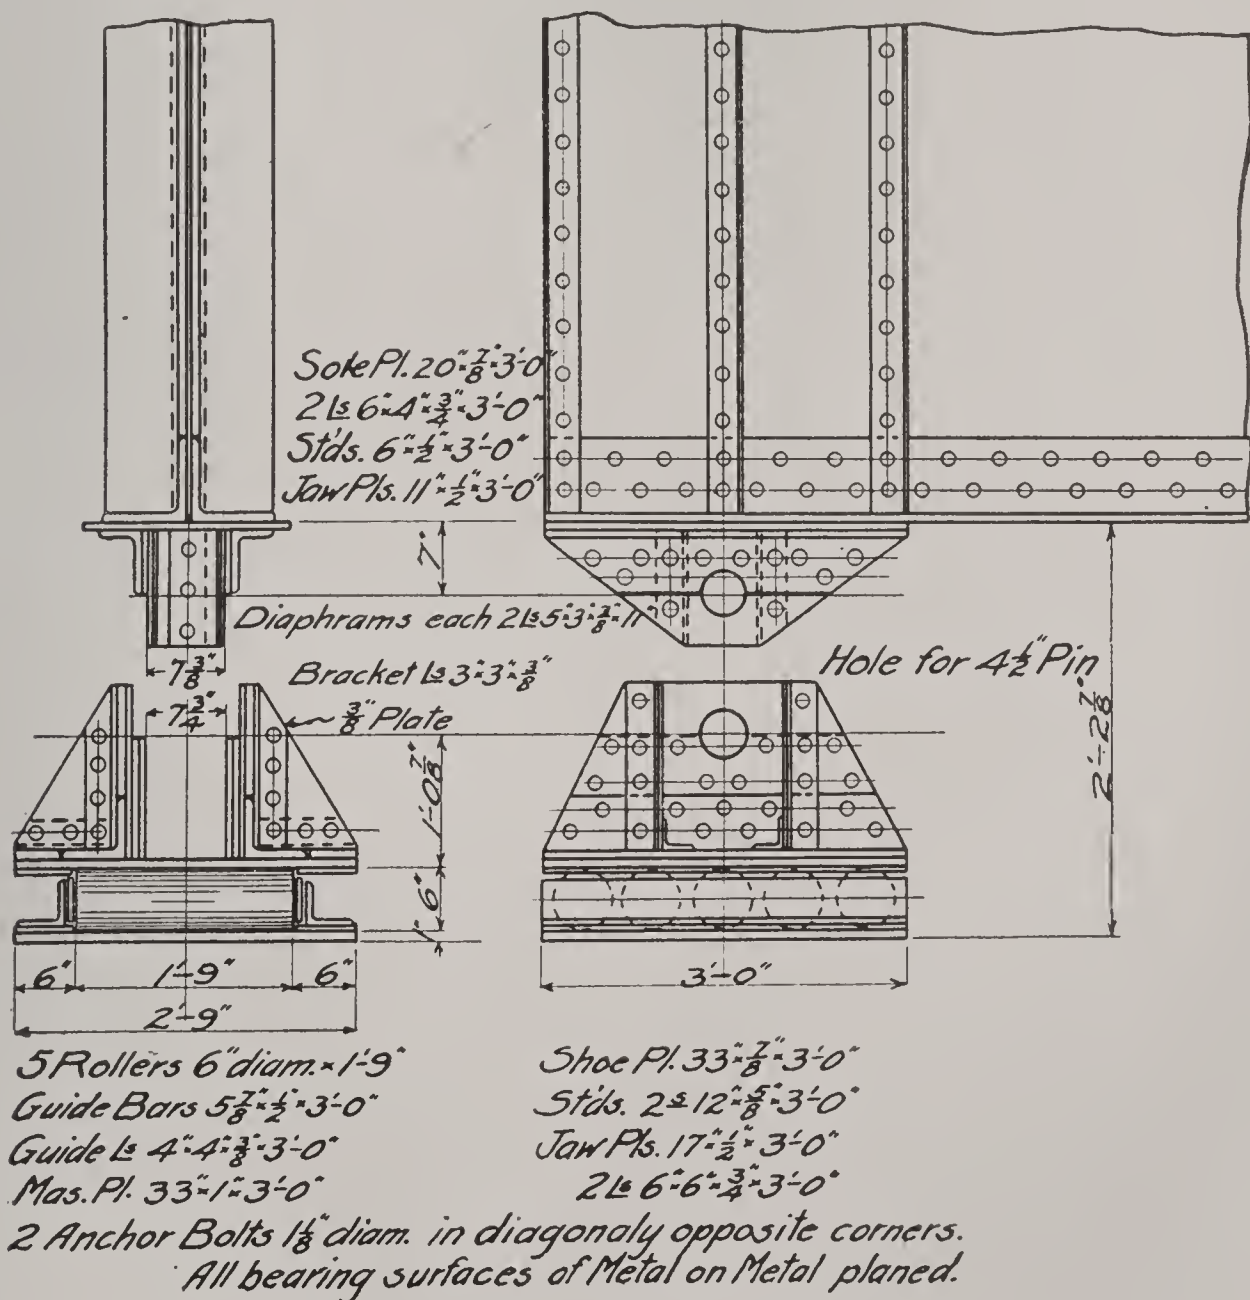 Sole Pl. 20"×7/8"×3'-0"
2 Ls 6"×4"×3/4"×3'-0"
St'ds. 6"×1/2"×3'-0"
Jaw Pls. 11"×1/2"×3'-0"
7"
Diaphrams each 2 Ls 5"×3"×3/8"×11"
7 3/8"
Bracket Ls 3"×3"×3/8"
Hole for 4 1/2" Pin
7 3/4"
3/8" Plate
1'-0 7/8"
2'-2 7/8"
6"
1"
6"
1'-9"
6"
3'-0"
2'-9"
5 Rollers 6" diam. × 1'-9"
Guide Bars 5 7/8"×1/2"×3'-0"
Guide Ls 4"×4"×3/8"×3'-0"
Mas. Pl. 33"×1"×3'-0"
Shoe Pl. 33"×7/8"×3'-0"
St'ds. 2 s 12"×5/8"×3'-0"
Jaw Pls. 17"×1/2"×3'-0"
2 Ls 6"×6"×3/4"×3'-0"
2 Anchor Bolts 1 1/8" diam. in diagonaly opposite corners.
All bearing surfaces of Metal on Metal planed.